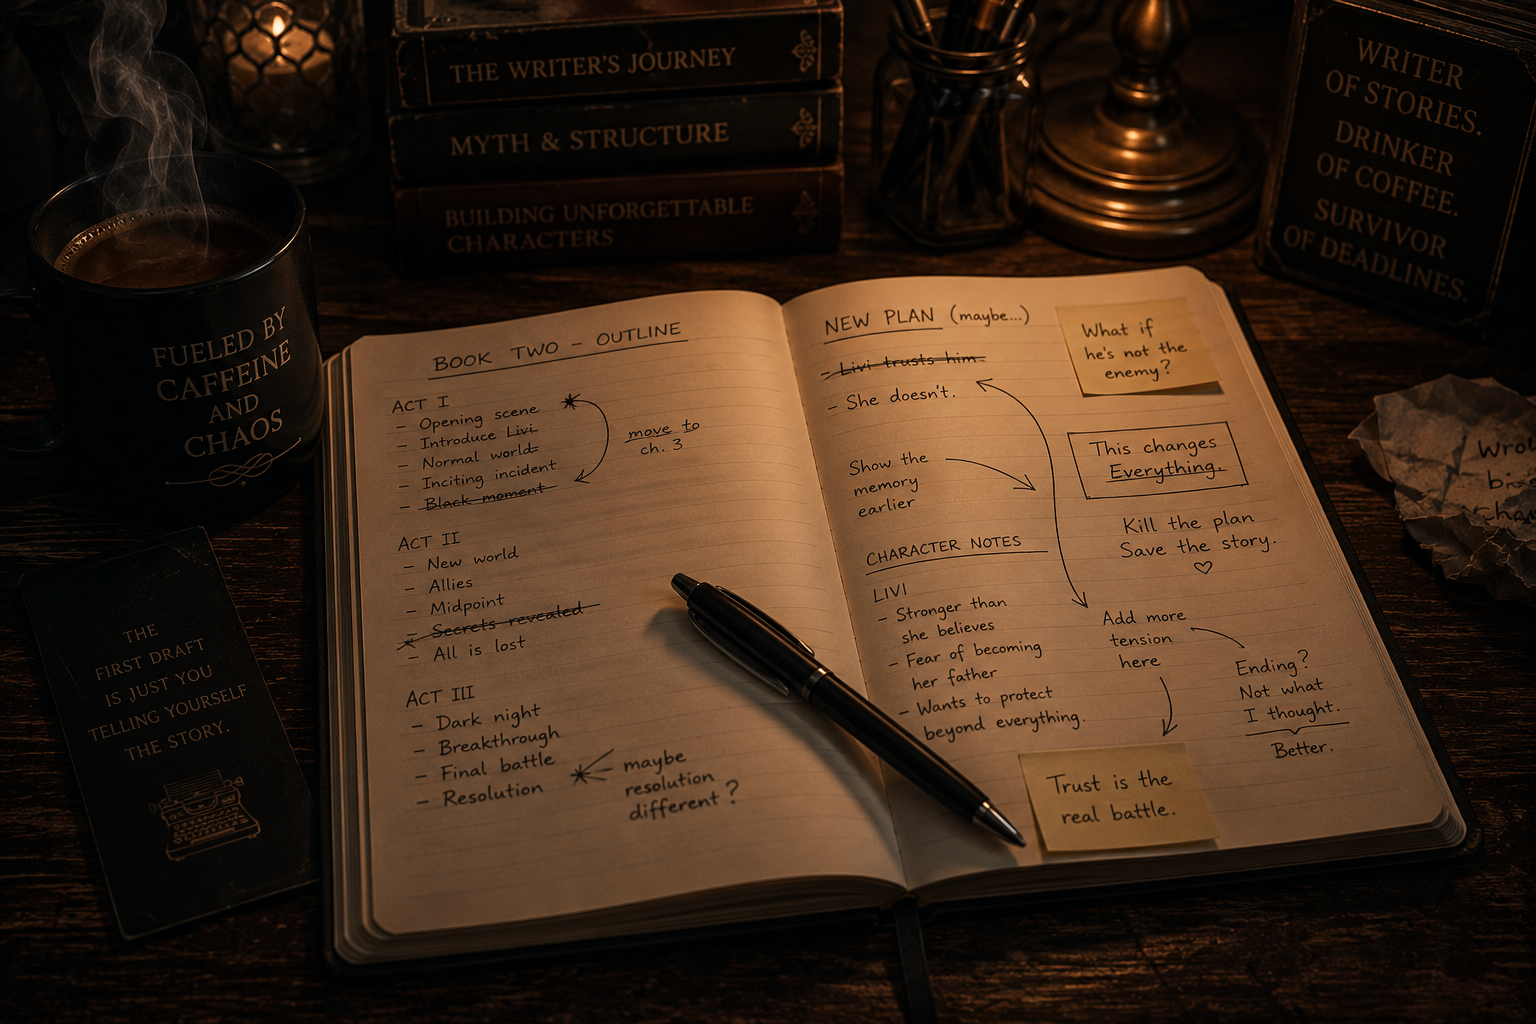 THE WRITER'S JOURNEY
MYTH & STRUCTURE
BUILDING UNFORGETTABLE
CHARACTERS
WRITER
OF STORIES.
DRINKER
OF COFFEE.
SURVIVOR
OF DEADLINES.
FUELED BY
CAFFEINE
AND
CHAOS
THE
FIRST DRAFT
IS JUST YOU
TELLING YOURSELF
THE STORY.
BOOK TWO – OUTLINE
ACT I
– Opening scene
– Introduce Livi
– Normal world
– Inciting incident
– Black moment
move to
ch. 3
ACT II
– New world
– Allies
– Midpoint
– Secrets revealed
– All is lost
ACT III
– Dark night
– Breakthrough
– Final battle
– Resolution
maybe
resolution
different?
NEW PLAN (maybe...)
– Livi trusts him
– She doesn't.
What if
he's not the
enemy?
This changes
Everything.
Show the
memory
earlier
Kill the plan
Save the story.
♡
CHARACTER NOTES
LIVI
– Stronger than
she believes
– Fear of becoming
her father
– Wants to protect
beyond everything.
Add more
tension
here
Ending?
Not what
I thought.
Better.
Trust is the
real battle.